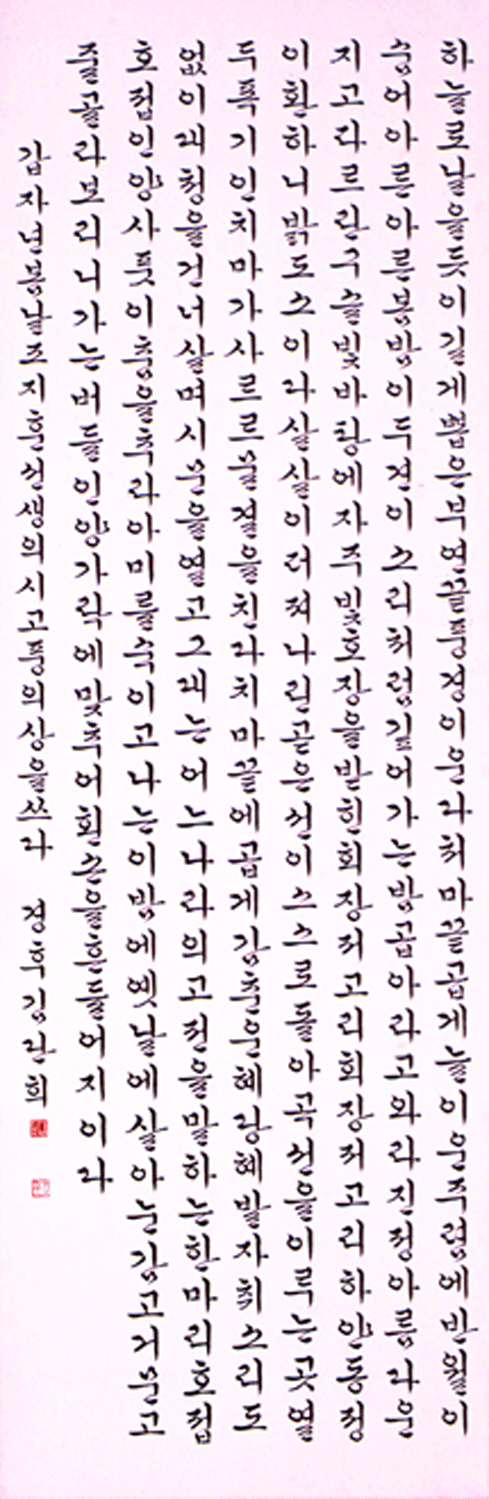 하늘로날을듯이길게뽑은부연끝풍경이운다처마끝곱게늘이운주렴에반월이
숨어아른아른봄밤이두견이소리처럼깊어가는밤곱아라고와라진정아름다운
지고파르란구슬빛바탕에자주빛호장을받힌회장저고리회장저고리하얀동정
이환하니밝도소이다살살이퍼져나린곧은선이스스로돌아곡선을이루는곳열
두폭기인치마가사르르물결을친다치마끝에곱게감춘운혜당혜발자취소리도
없이대청을건너살며시문을열고그대는어느나라의고전을말하는한마리호접
호접인양사풋이춤을추라아미를숙이고나는이밤에옛날에살아눈감고거문고
줄골라보리니가는버들인양가락에맞추어흰손을흔들어지이다
갑자년봄날조지훈선생의시고풍의상을쓰다 경후김단희